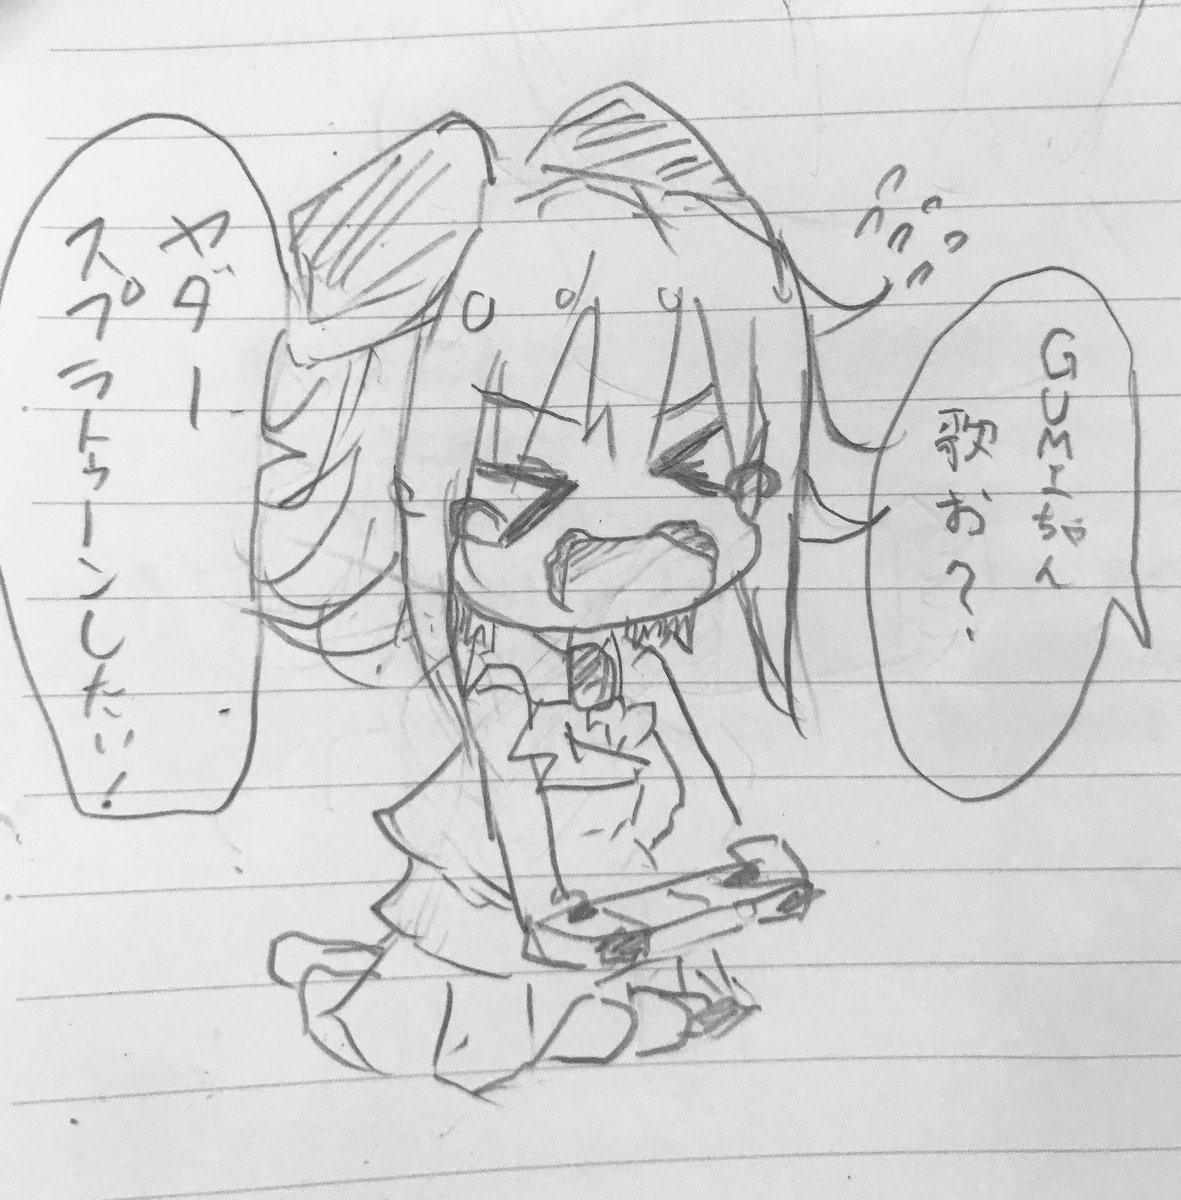 GUMIちゃん
歌お?
ヤダー
スプラトゥーンしたい!